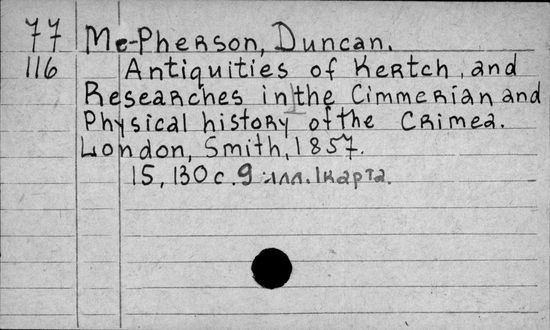 77 Mc-Pherson, Duncan.
116 Antiquities of Kertch, and
Researches in the Cimmerian and
Physical history of the Crimea.
London, Smith, 1857.
15, 130 с. 9 илл. 1 карта.